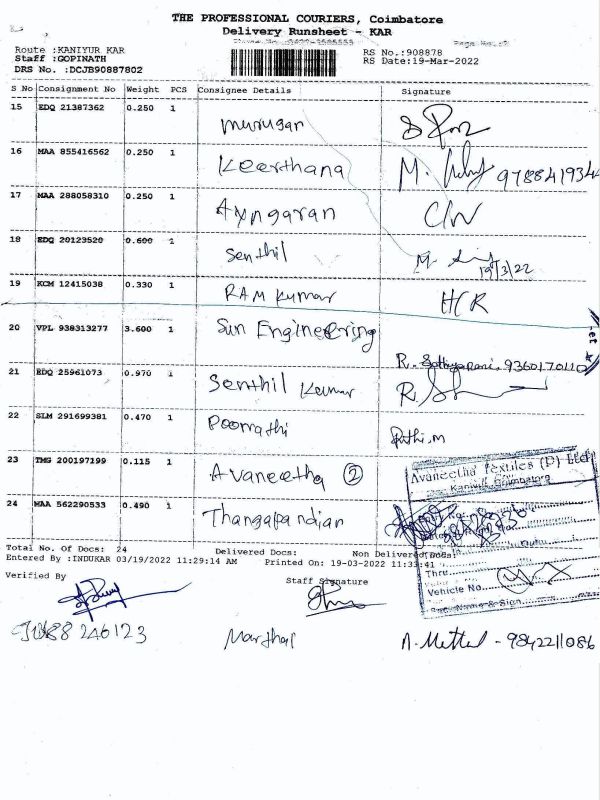 THE PROFESSIONAL COURIERS, Coimbatore
Delivery Runsheet - KAR
Route :KANIYUR KAR
RS No.:908878
Staff :GOPINATH
RS Date:19-Mar-2022
DRS No. :DCJB90887802
S No Consignment No Weight PCS Consignee Details Signature
15 EDQ 21387362 0.250 1 murugan
16 MAA 855416562 0.250 1 Keerthana M. 9788419344
17 MAA 288058310 0.250 1 Ayyngaran C/W
18 EDQ 20123520 0.600 1 Senthil M. 19/3/22
19 KCM 12415038 0.330 1 RAM Kumar HCR
20 VPL 938313277 3.600 1 Sun Engineering R. Sathyarani. 9360170110
21 EDQ 25961073 0.970 1 Senthil Kumar
22 SLM 291699381 0.470 1 Poomathi
23 TMG 200197199 0.115 1 Avaneetha 2
24 MAA 562290533 0.490 1 Thangapandian
Avaneetha Textiles (P) Ltd
Kaniyur Coimbatore
Thru
Vehicle No
Sec. Name & Sign
Total No. Of Docs: 24 Delivered Docs: Non Delivered Docs:
Entered By :INDUKAR 03/19/2022 11:29:14 AM Printed On: 19-03-2022 11:33:41
Verified By Staff Signature
246123 Marthal - 9842211086